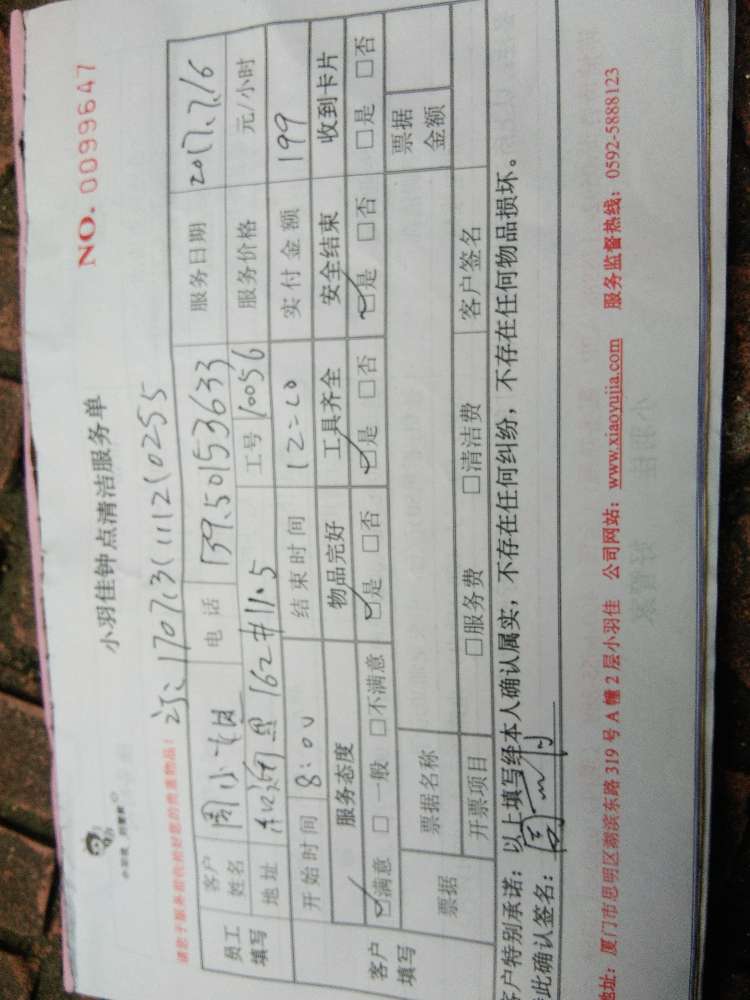 NO. 0099647
小羽佳钟点清洁服务单
请您于服务前收拾好您的贵重物品!
170713111210255
员工填写
客户姓名 周小 电话 13950153633 服务日期 2017.7.16
地址 162#11.5 工号 10056 服务价格 元/小时
开始时间 8:00 结束时间 12:20 实付金额 199
客户填写
服务态度 物品完好 工具齐全 安全结束 收到卡片
☑满意 □一般 □不满意 ☑是 □否 ☑是 □否 ☑是 □否 □是 □否
票据 票据名称 票据金额
开票项目 □服务费 □清洁费 客户签名
客户特别承诺:以上填写经本人确认属实,不存在任何纠纷,不存在任何物品损坏。
此确认签名:周
地址:厦门市思明区湖滨东路 319 号 A 幢 2 层小羽佳 公司网站:www.xiaoyujia.com 服务监督热线:0592-5888123